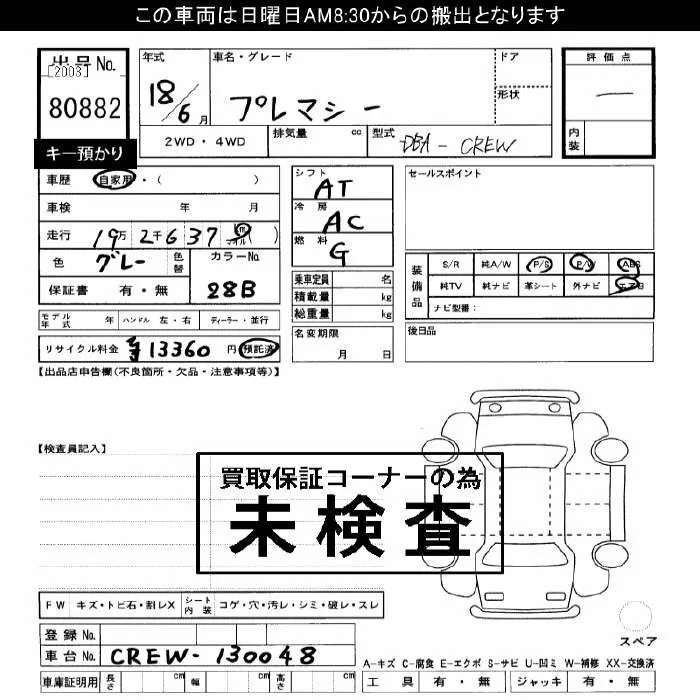 この車両は日曜日AM8:30からの搬出となります
出品No. [2003]
80882
キー預かり
年式 18/6月
車名・グレード プレマシー
ドア
形状
評価点 —
内装
2WD・4WD 排気量 cc 型式 DBA-CREW
車歴 自家用・( )
車検 年 月
走行 19万2千637 km マイル )
色 グレー 色替 カラーNo. 28B
保証書 有・無
シフト AT
冷房 AC
燃料 G
セールスポイント
乗車定員 名
積載量 kg
総重量 kg
装備品 S/R 純A/W P/S P/W ABS
純TV 純ナビ 革シート 外ナビ エアB
ナビ型番:
モデル年式 年 ハンドル 左・右 ディーラー・並行
名変期限 月 日
後日品
リサイクル料金 ¥13360 円 預託済
【出品店申告欄(不良箇所・欠品・注意事項等)】
【検査員記入】
買取保証コーナーの為
未検査
FW キズ・トビ石・割レX シート内装 コゲ・穴・汚レ・シミ・破レ・スレ
スペア
登録No.
車台No. CREW-130048
A-キズ C-腐食 E-エクボ S-サビ U-凹ミ W-補修 XX-交換済
車庫証明用 長さ cm 幅 cm 高さ cm
工具 有・無 ジャッキ 有・無